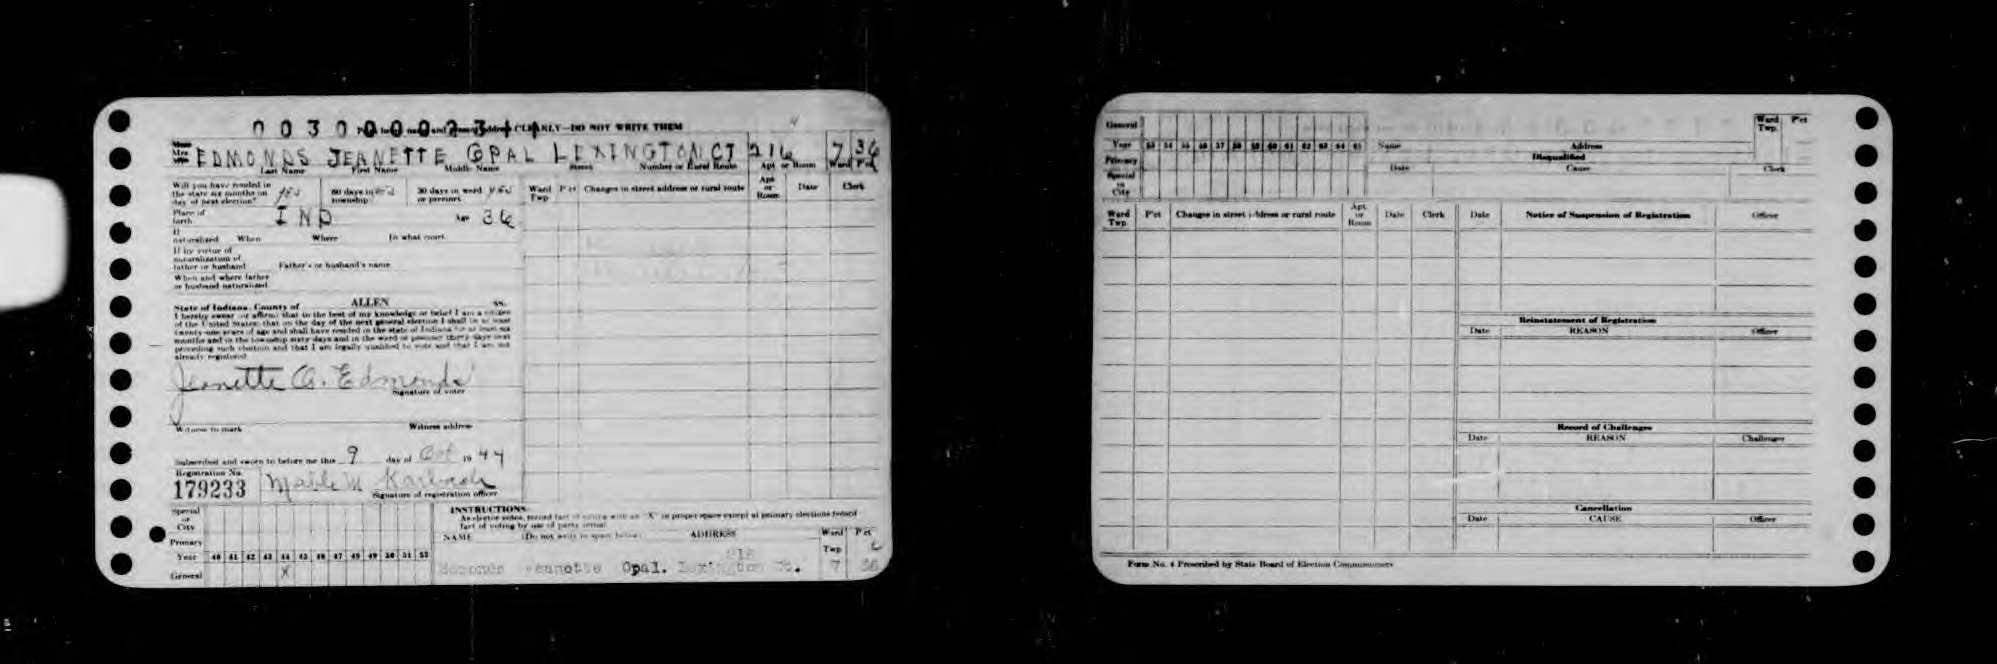 0030000023
CLEARLY—DO NOT WRITE THEM
Mrs. EDMONDS JEANETTE OPAL LEXINGTON CT 216 7 36
Last Name First Name Middle Name Street Number or Rural Route Apt or Room Ward P'ct
Will you have resided in the state six months on day of next election? yes 60 days in township yes 30 days in ward or precinct yes
Ward Twp P'ct Changes in street address or rural route Apt or Room Date Clerk
Place of birth IND Age 36
If naturalized When Where In what court
If by virtue of naturalization of father or husband Father's or husband's name
When and where father or husband naturalized
State of Indiana, County of ALLEN ss.
I hereby swear (or affirm) that to the best of my knowledge or belief I am a citizen
of the United States; that on the day of the next general election I shall be at least
twenty-one years of age and shall have resided in the state of Indiana for at least six
months and in the township sixty days and in the ward or precinct thirty days next
preceding such election and that I am legally qualified to vote and that I am not
already registered
Jeanette O. Edmonds
Signature of voter
Witness to mark Witness address
Subscribed and sworn to before me this 9 day of Oct 19 44
Registration No.
179233
Signature of registration officer
Special or City
Primary
Year 40 41 42 43 44 45 46 47 48 49 50 51 52
General X
INSTRUCTIONS
As elector votes, record fact of voting with an "X" in proper space except at primary elections record
fact of voting by use of party initial
NAME (Do not write in space below) ADDRESS Ward Twp P'ct
Edmonds Jeanette Opal. Lexington Ct. 216 7 36
General
Year 53 54 55 56 57 58 59 60 61 62 63 64 65
Primary
Special or City
Name Address Ward Twp. P'ct
Disqualified
Date Cause Clerk
Ward Twp. P'ct Changes in street address or rural route Apt. or Room Date Clerk
Date Notice of Suspension of Registration Officer
Reinstatement of Registration
Date REASON Officer
Record of Challenges
Date REASON Challenger
Cancellation
Date CAUSE Officer
Form No. 4 Prescribed by State Board of Election Commissioners